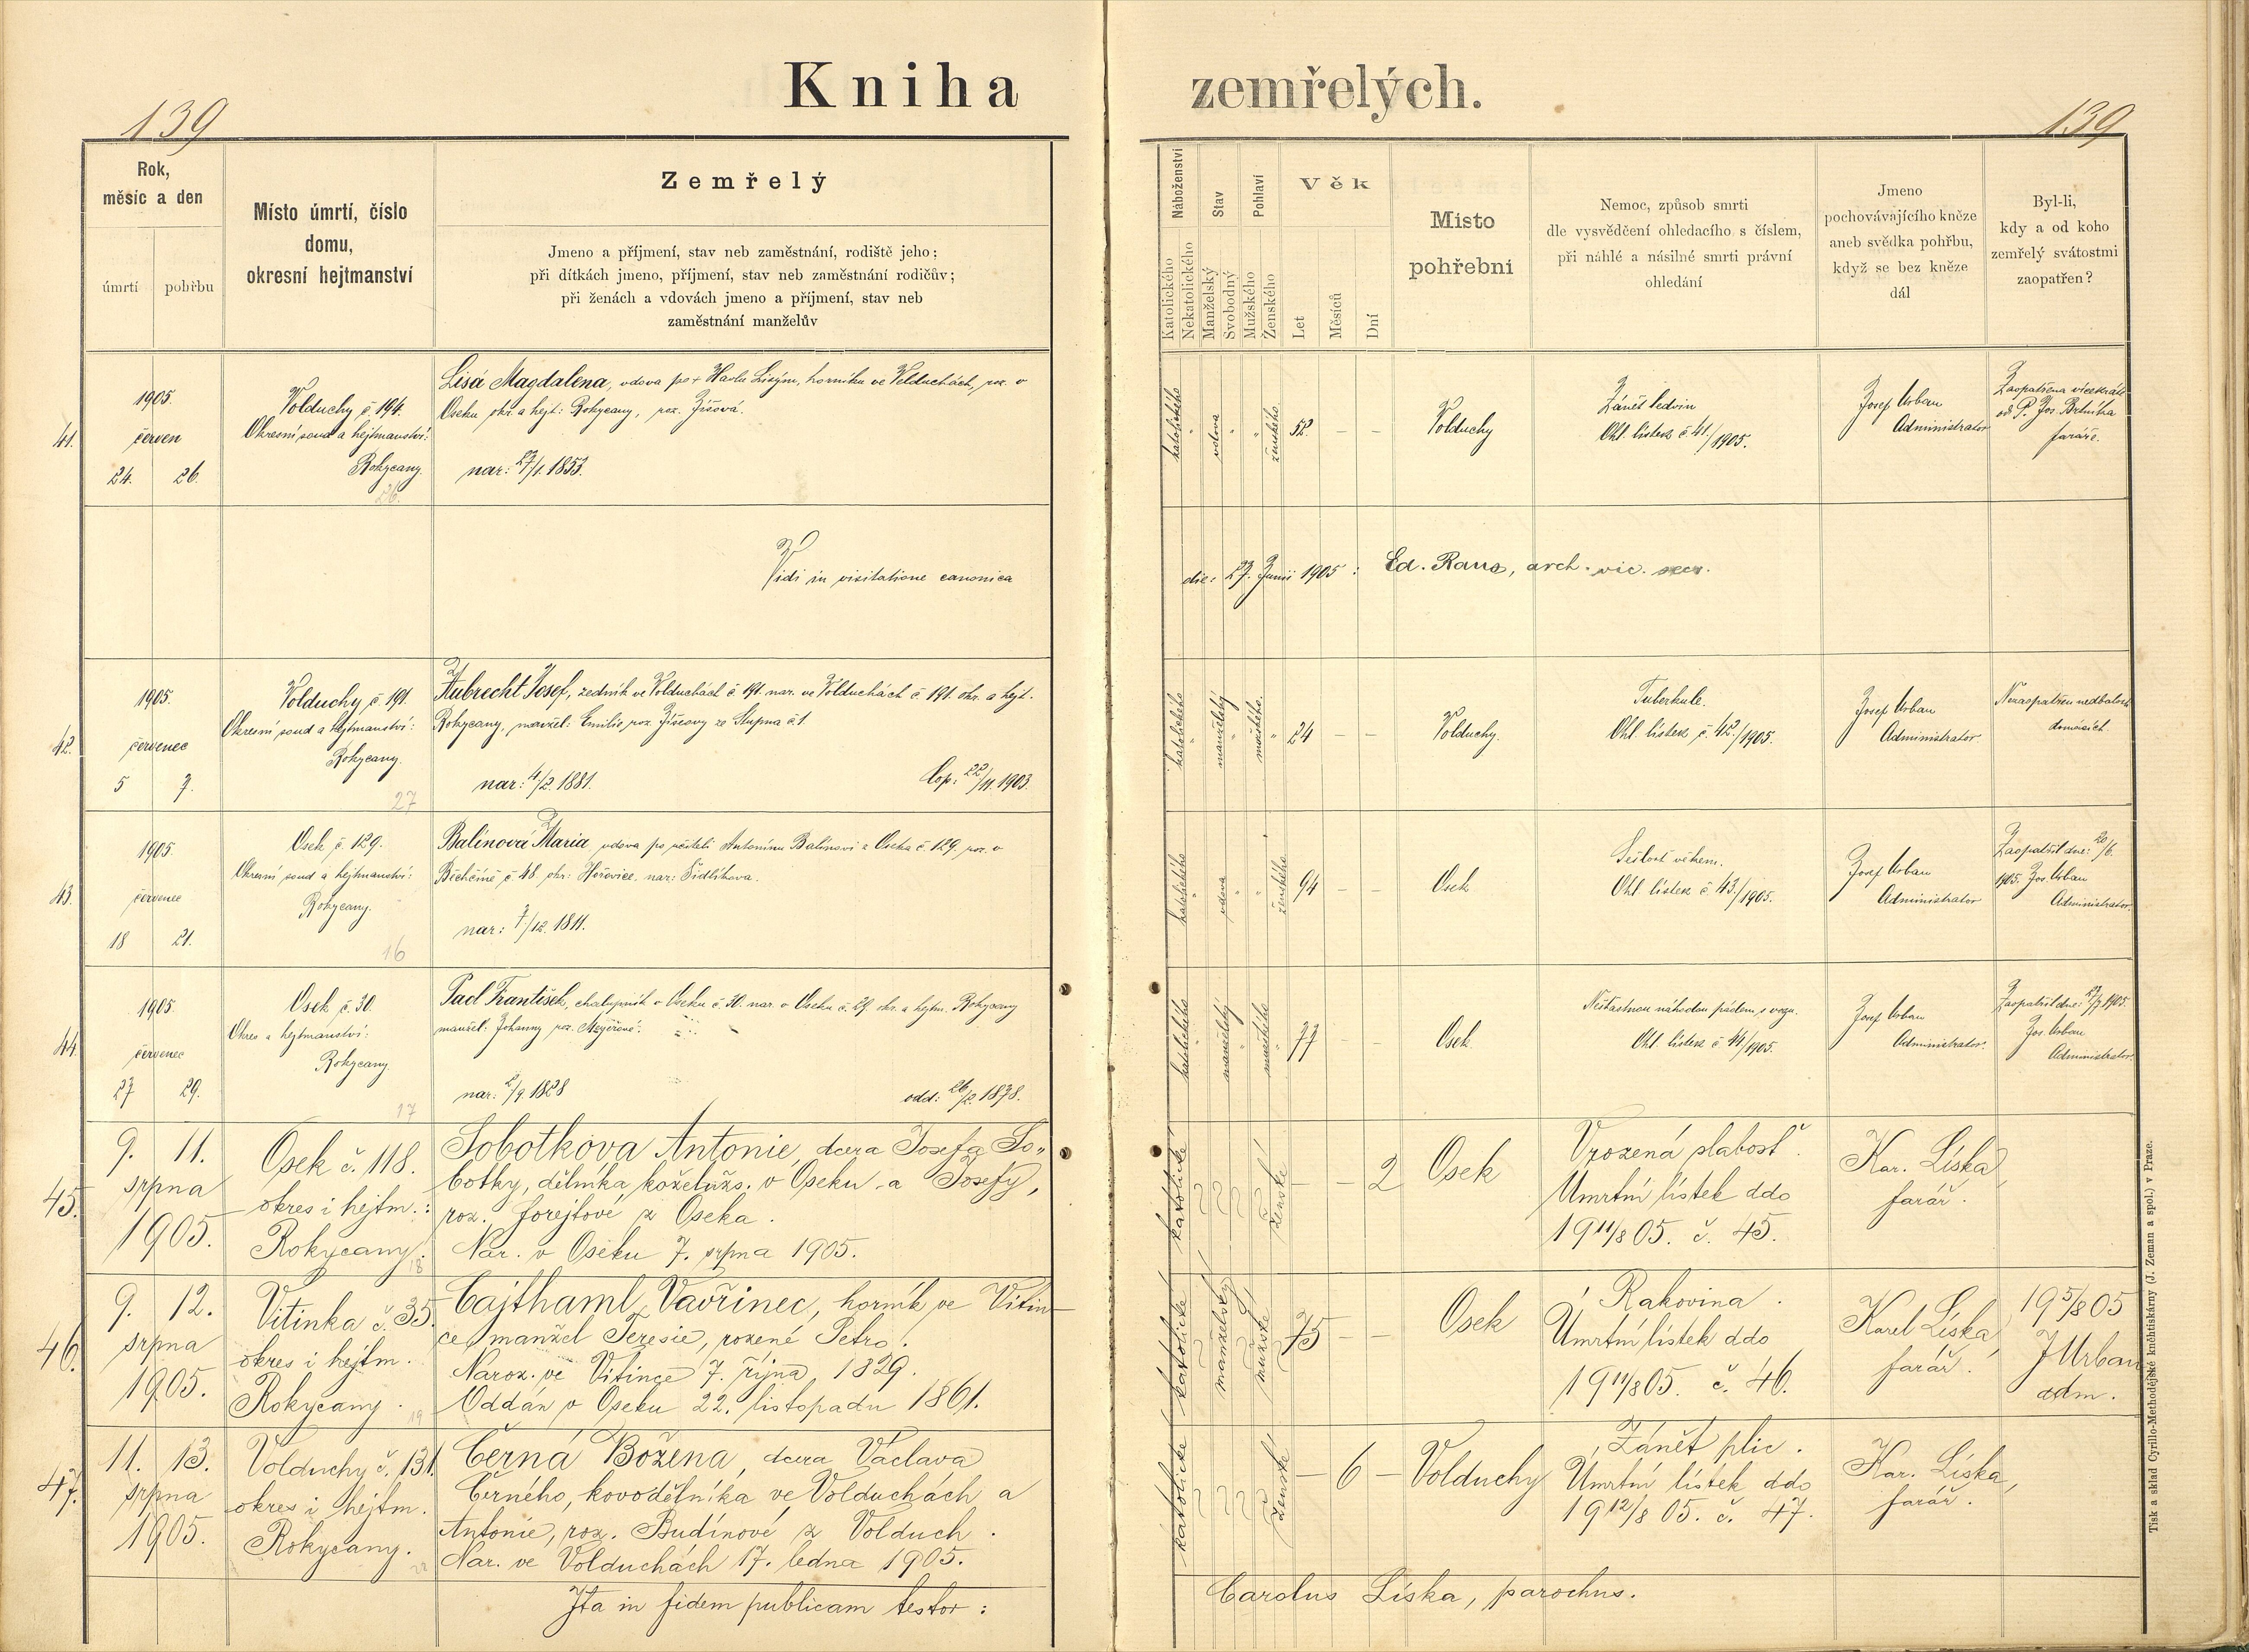 Kniha zemřelých.
139
139
Rok,
měsíc a den
úmrtí
pohřbu
Místo úmrtí, číslo
domu,
okresní hejtmanství
Zemřelý
Jmeno a příjmení, stav neb zaměstnání, rodiště jeho;
při dítkách jmeno, příjmení, stav neb zaměstnání rodičův;
při ženách a vdovách jmeno a příjmení, stav neb
zaměstnání manželův
Náboženství
Katolického
Nekatolického
Stav
Manželský
Svobodný
Pohlaví
Mužského
Ženského
Věk
Let
Měsíců
Dní
Místo
pohřební
Nemoc, způsob smrti
dle vysvědčení ohledacího s číslem,
při náhlé a násilné smrti právní
ohledání
Jmeno
pochovávajícího kněze
aneb svědka pohřbu,
když se bez kněze
dál
Byl-li,
kdy a od koho
zemřelý svátostmi
zaopatřen?
41.
1905.
červen
24. 26.
Volduchy č. 194.
Okresní soud a hejtmanství:
Rokycany.
26.
Lisá Magdalena, vdova po + Havlu Lisým, horníku ve Volduchách, roz. v
Oseku okr. a hejt: Rokycany, roz. Žížová.
nar: 27/1. 1853.
katolického
vdova
ženského
52 – –
Volduchy
Zánět ledvin
Ohl. lístek č 41/1905.
Josef Urban
Administrator
Zaopatřena vícekráte
od P. Jos. Brtníka
faráře.
Vidi in visitatione canonica
die: 27. Junii 1905: Ed. Raus, arch. vic. secr.
42.
1905.
červenec
5 7.
Volduchy č. 191.
Okresní soud a hejtmanství:
Rokycany.
27
Aubrecht Josef, zedník ve Volduchách č 191. nar. ve Volduchách č 191. okr. a hejt.
Rokycany, manžel: Emilie, roz. ze Stupna č 1.
nar: 4/2. 1881. Cop: 22/11. 1903.
katolického
manželský
mužského
24 – –
Volduchy.
Tuberkule.
Ohl. lístek č. 42./1905.
Josef Urban
Administrator
Nezaopatřen nedbalostí
domácích.
43.
1905.
červenec
18 21.
Osek č. 129.
Okresní soud a hejtmanství:
Rokycany.
16
Balínová Maria, vdova po učiteli Antonínu Balínovi z Oseka č. 129. roz. v
č. 48 okr: Hořovice, nar: Šidlíkova.
nar: 7/12. 1811.
katolického
vdova
ženského
94 – –
Osek
Sešlost věkem.
Ohl. lístek č 43./1905.
Josef Urban
Administrator
Zaopatřil dne: 20/6.
1905. Jos. Urban
Administrator.
44.
1905.
červenec
27 29.
Osek č. 30.
Okres a hejtmanství:
Rokycany
17
Pacl František, chalupník v Oseku č. 30. nar. v Oseku č. 29. okr. a hejtm. Rokycany
manžel: Johanny roz. Mejěřové.
nar: 2/9 1828 odd: 26/2. 1878.
katolického
manželský
mužského
77 – –
Osek
Nešťastnou náhodou pádem s vozu.
Ohl. lístek č 44/1905.
Josef Urban
Administrator.
Zaopatřil dne: 27/7 1905.
Jos. Urban
Administrator.
45.
9. 11.
srpna
1905.
Osek č. 118.
okres i hejtm.:
Rokycany.
18
Sobotkova Antonie, dcera Josefa So„
botky, dělníka koželužs. v Oseku a Josefy,
roz. Forejtové z Oseka.
Nar. v Oseku 7. srpna 1905.
katolické
ženské
– – 2
Osek
Vrozená slabosť.
Umrtní lístek ddo
19 11/8 05. č. 45.
Kar. Líska,
farář.
46.
9. 12.
srpna
1905.
Vitinka č. 35.
okres i hejtm.
Rokycany.
19
Cajthaml Vavřinec, horník ve Vitin-
ce, manžel Teresie, rozené Petro.
Naroz. ve Vitince 7. října 1829.
Oddán v Oseku 22. listopadu 1861.
katolické
manželský
mužské
75 – –
Osek
Rakovina.
Úmrtní lístek ddo
19 11/8 05. č. 46.
Karel Líska,
farář.
19 5/8 05
J Urban
adm.
47.
11. 13.
srpna
1905.
Volduchy č. 131.
okres i hejtm.
Rokycany.
Černá Božena, dcera Václava
Černého, kovodělníka ve Volduchách a
Antonie, roz. Budínové z Volduch.
Nar. ve Volduchách 17. ledna 1905.
katolické
ženské
– 6 –
Volduchy
Zánět plic.
Umrtní lístek ddo
19 12/8 05. č. 47.
Kar. Líska,
farář.
Ita in fidem publicam testor:
Carolus Líska, parochus.
Tisk a sklad Cyrillo-Methodějské knihtiskárny (J. Zeman a spol.) v Praze.